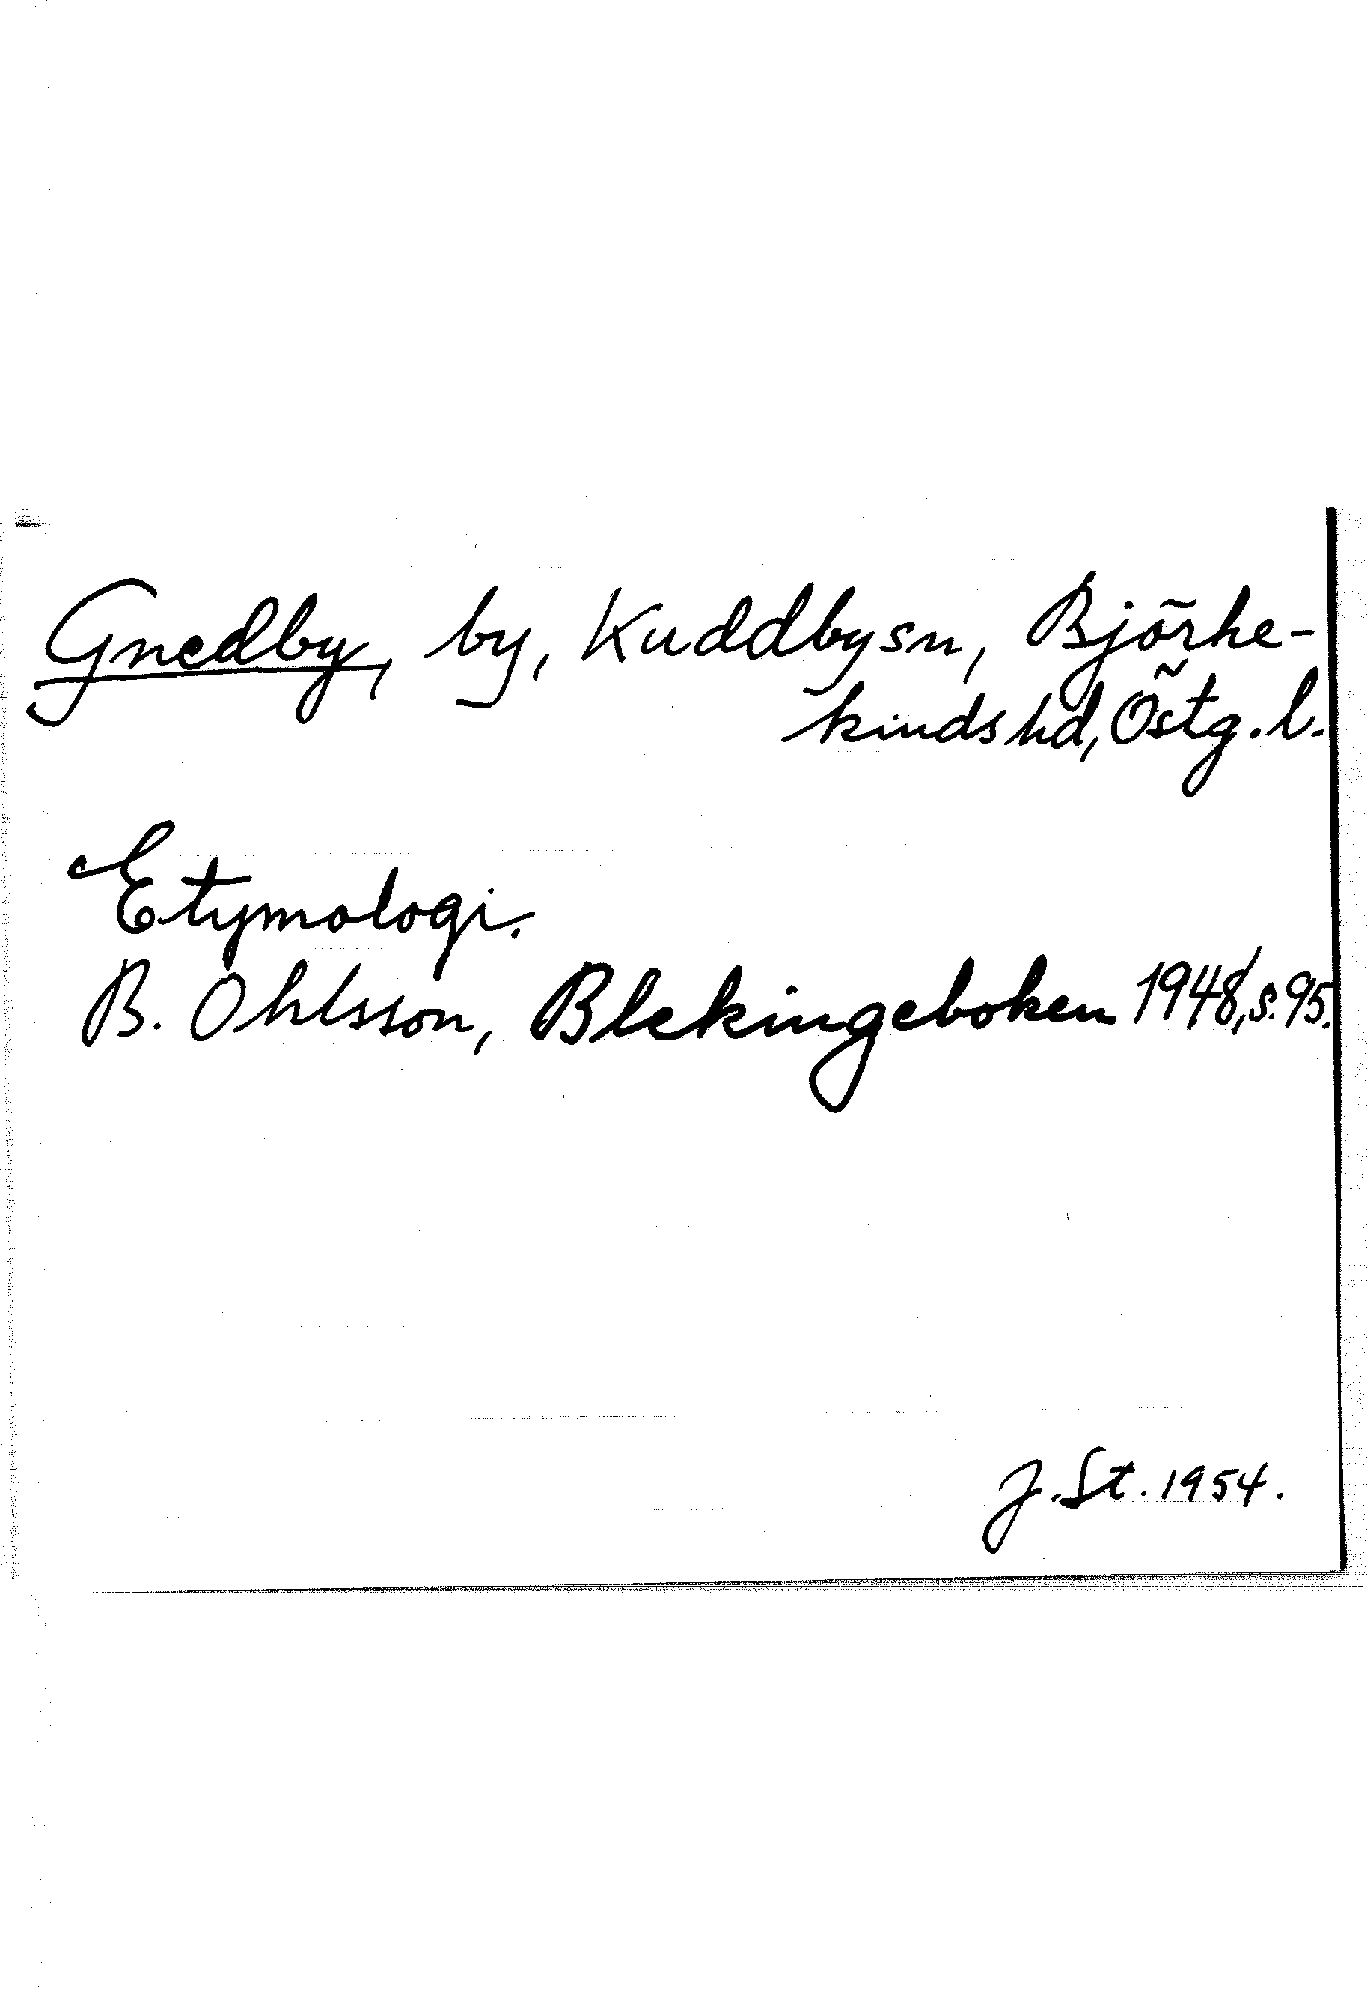 Gnedby, by, Kuddbysn, Björke-
kinds hd, Östg. l.
Etymologi.
B. Ohlsson, Blekingeboken 1948, s. 95.
J. St. 1954.